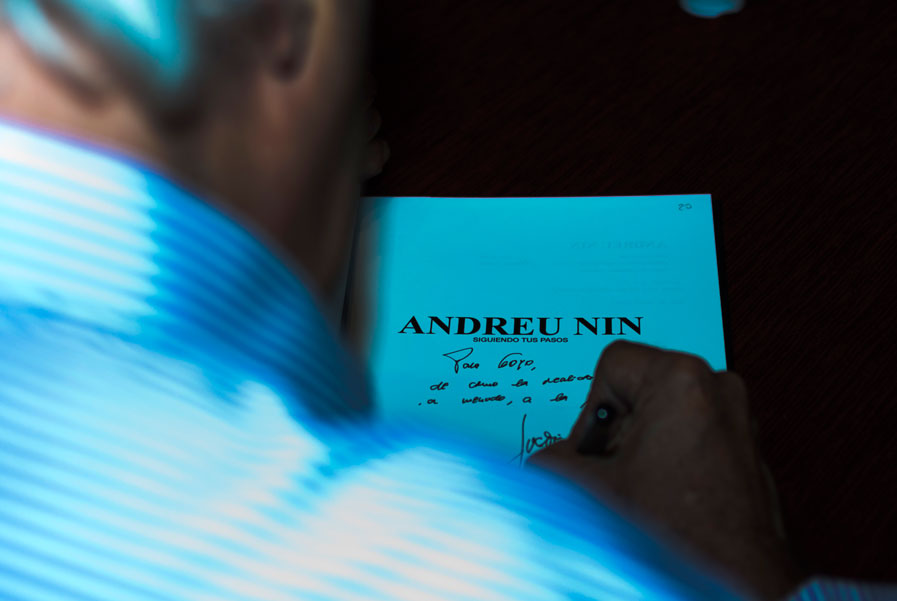 ANDREU NIN
SIGUIENDO TUS PASOS
Para Goyo,
de cómo la realidad
a menudo, a la